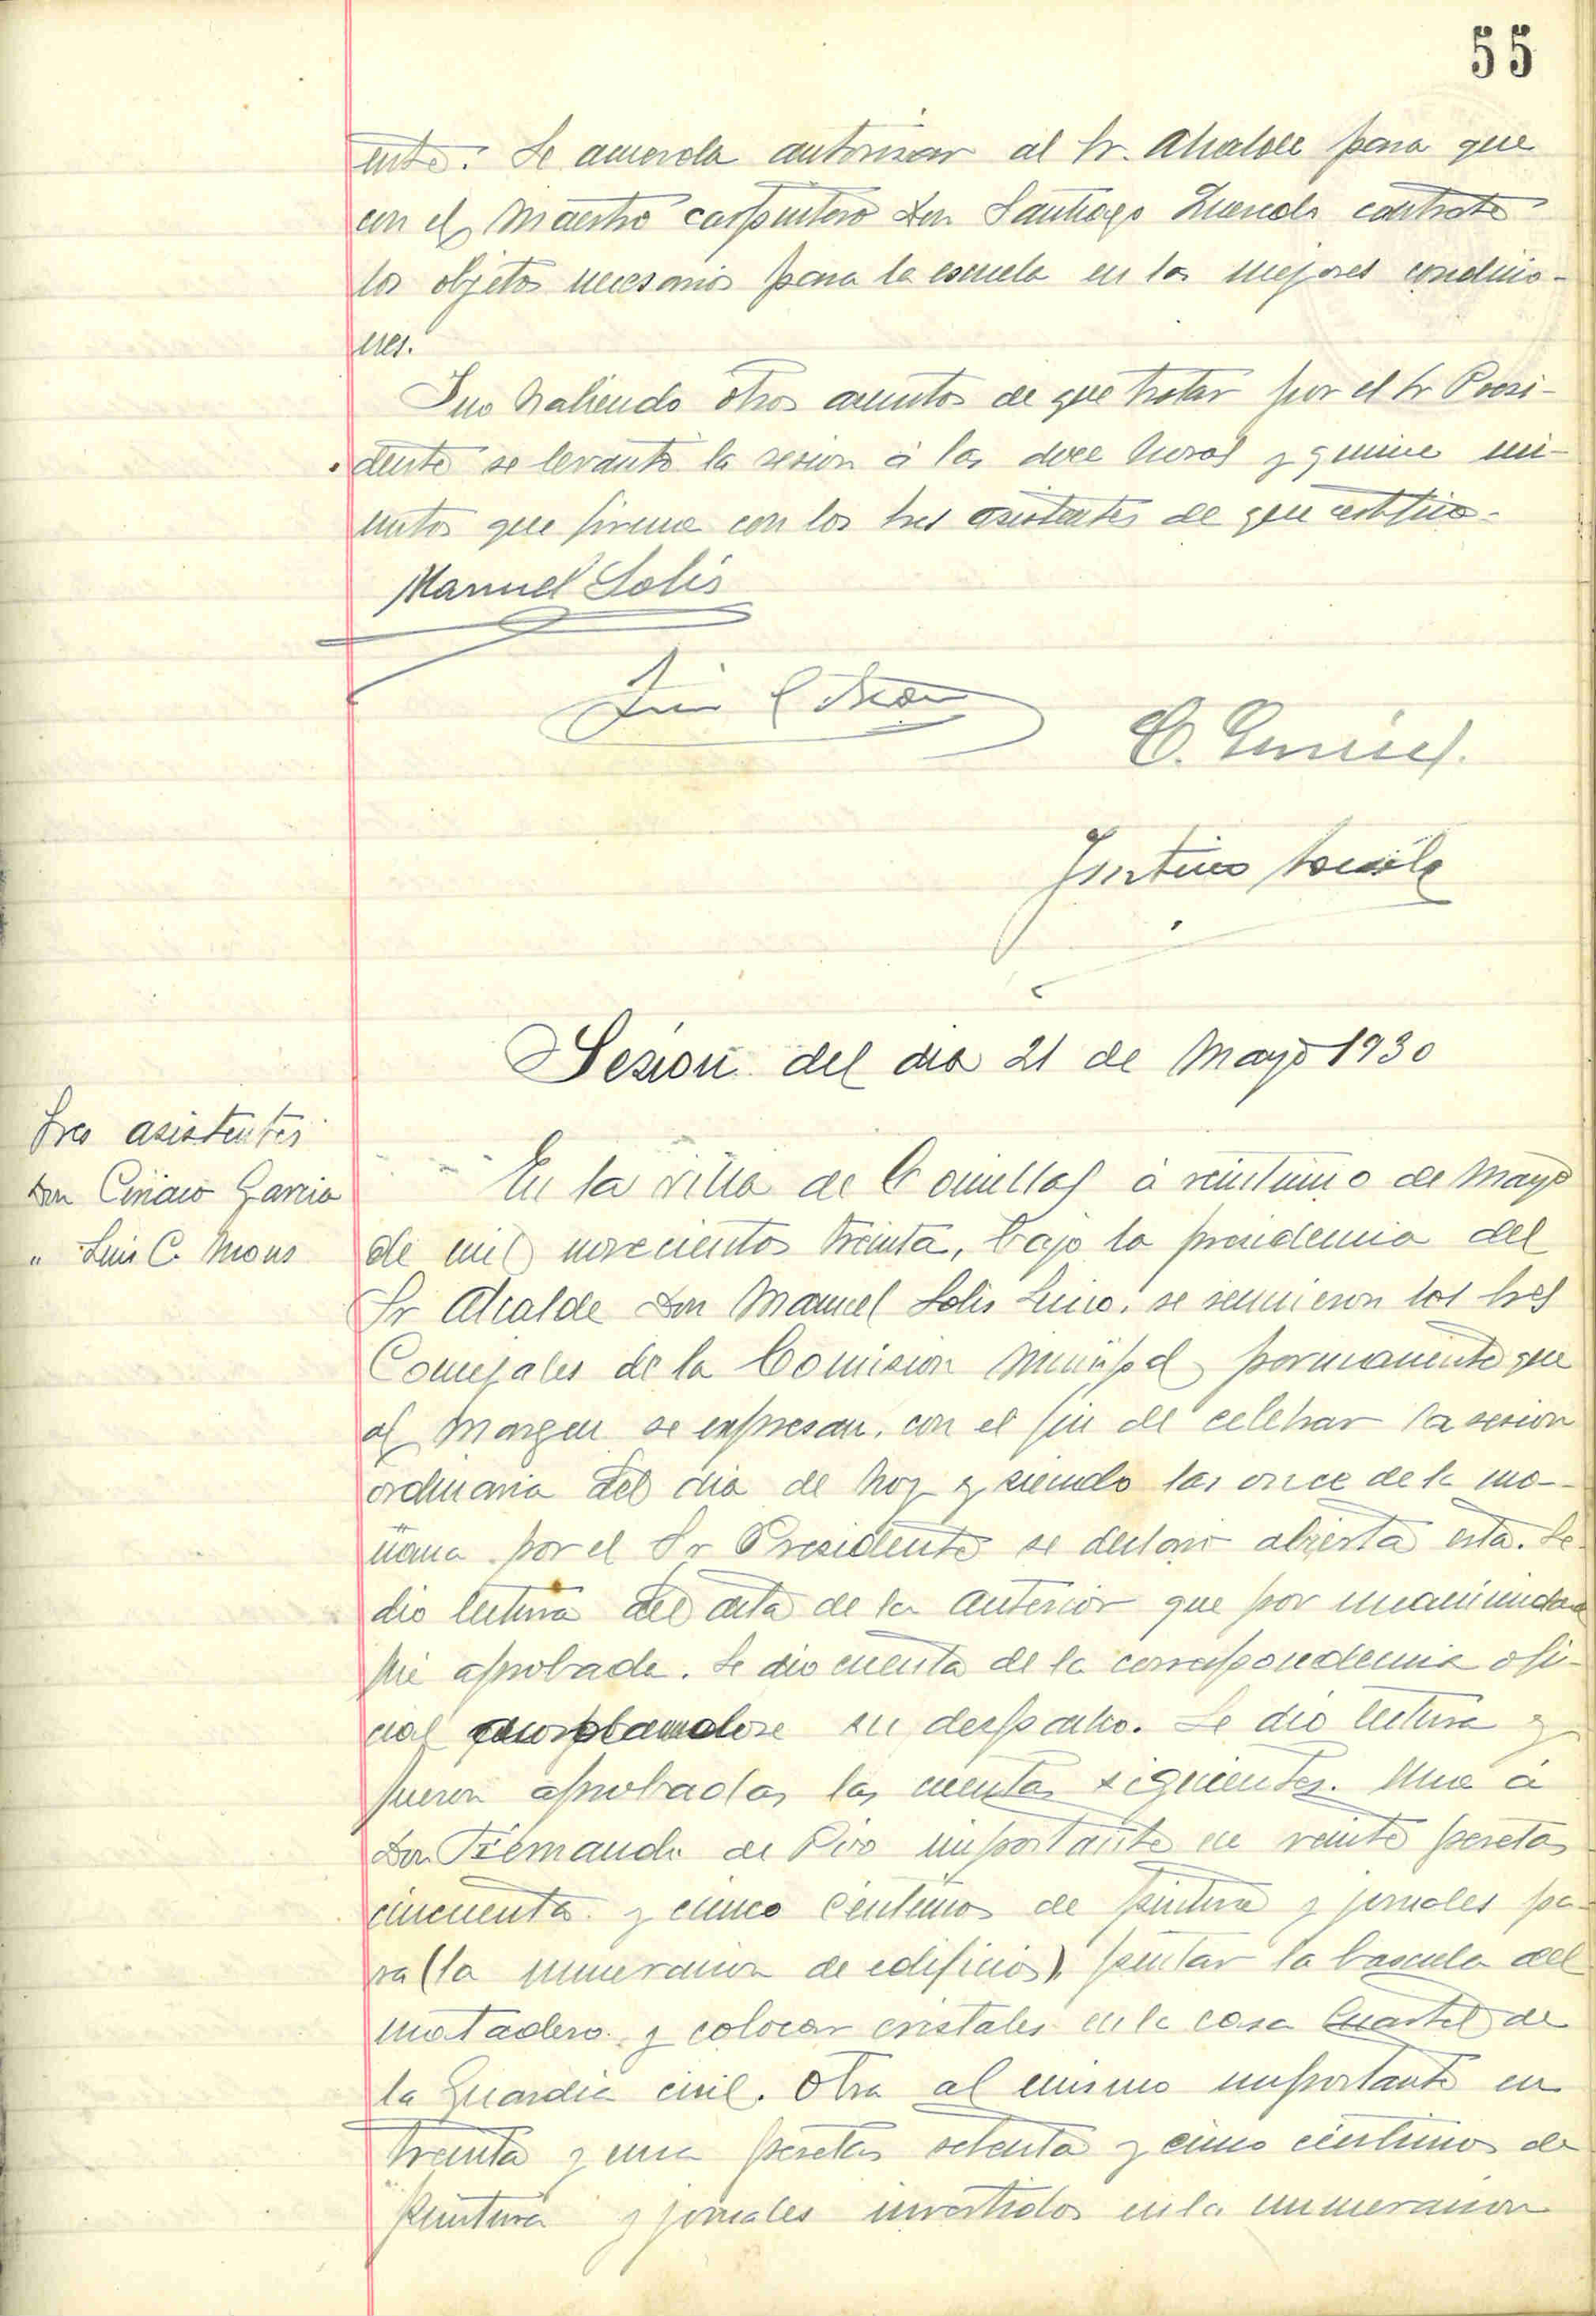 55
ente. Se acuerda autorizar al Sr. Alcalde para que
con el Maestro carpintero Don Santiago contrate
los objetos necesarios para la escuela en las mejores condicio-
nes.
Y no habiendo otros asuntos de que tratar por el Sr Presi-
dente se levantó la sesion á las doce horas y quince mi-
nutos que firma con los Sres asistentes de que certifico.
Manuel Solis
Luis C. Mons
C. García
Justino
Sesion del dia 21 de Mayo 1930
Sres asistentes
Don Ciriaco Garcia
" Luis C. Mons
En la villa de Comillas á veintiuno de Mayo
de mil novecientos treinta, bajo la presidencia del
Sr Alcalde Don Manuel Solis se reunieron los Sres
Concejales de la Comision Municipal permanente que
al margen se expresan, con el fin de celebrar la sesion
ordinaria del dia de hoy y siendo las once de la ma-
ñana por el Sr Presidente se declaró abierta esta. Se
dio lectura del acta de la anterior que por unanimidad
fué aprobada. Se dio cuenta de la correspondencia ofi-
cial su despacho. Se dio lectura y
fueron aprobadas las cuentas siguientes. Una á
Don Fernando de Rio importante en veinte pesetas
cincuenta y cinco centimos de pintura y jornales pa-
ra (la numeracion de edificios), pintar la bascula del
matadero y colocar cristales en la casa Cuartel de
la Guardia civil. Otra al mismo importante en
treinta y una pesetas setenta y cinco céntimos de
pintura y jornales invertidos en la numeracion